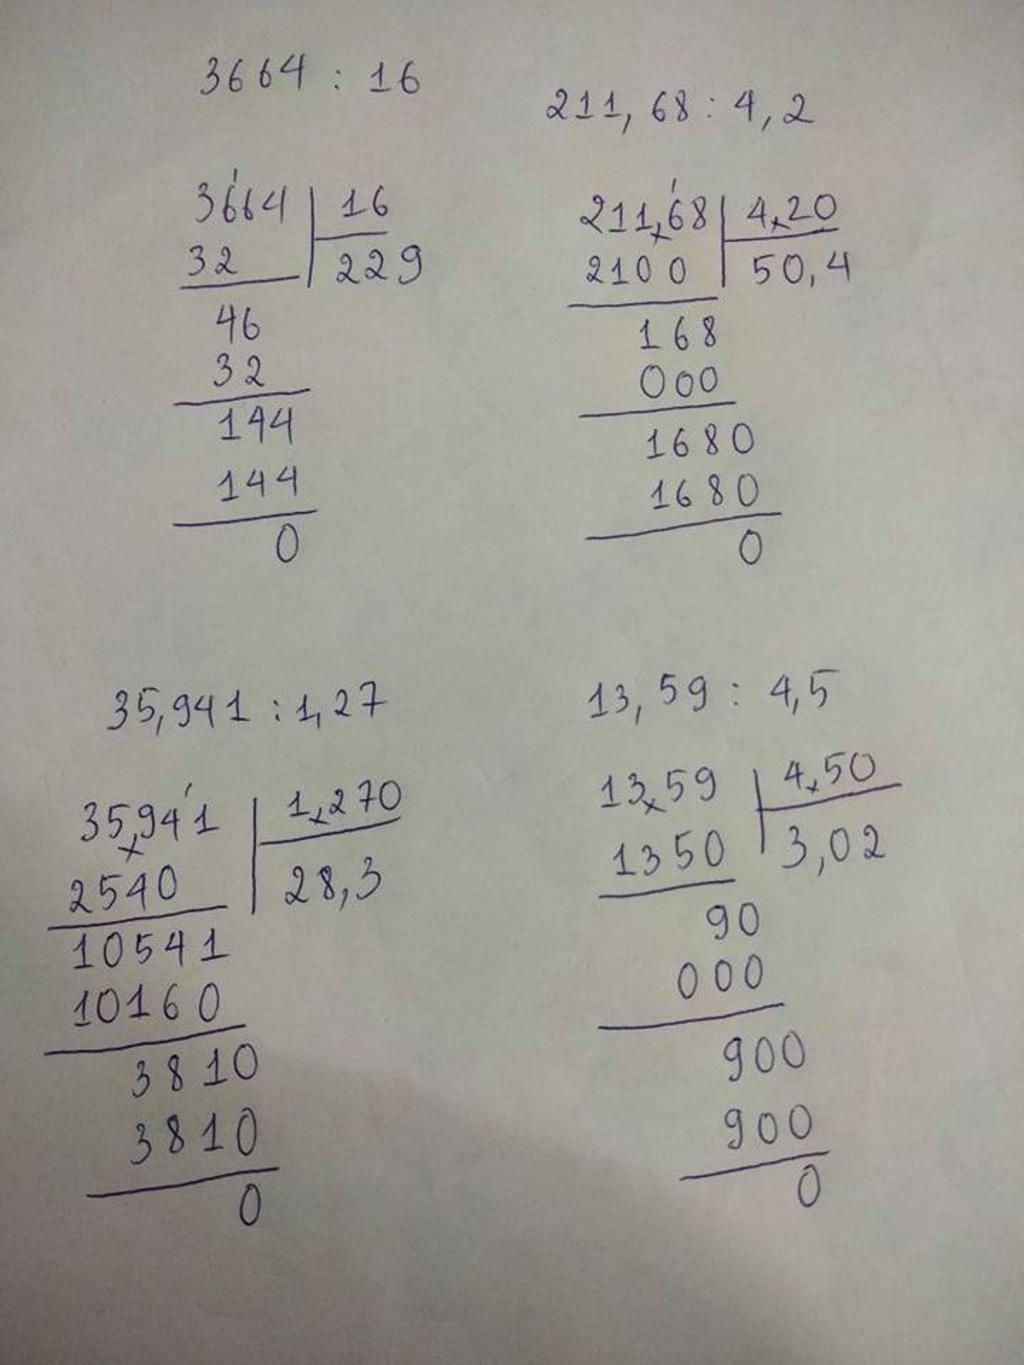 3664 : 16
3664 | 16
32 | 229
46
32
144
144
0
211,68 : 4,2
211,68 | 4,20
2100 | 50,4
168
000
1680
1680
0
35,941 : 1,27
35,941 | 1,270
2540 | 28,3
10541
10160
3810
3810
0
13,59 : 4,5
13,59 | 4,50
1350 | 3,02
90
000
900
900
0